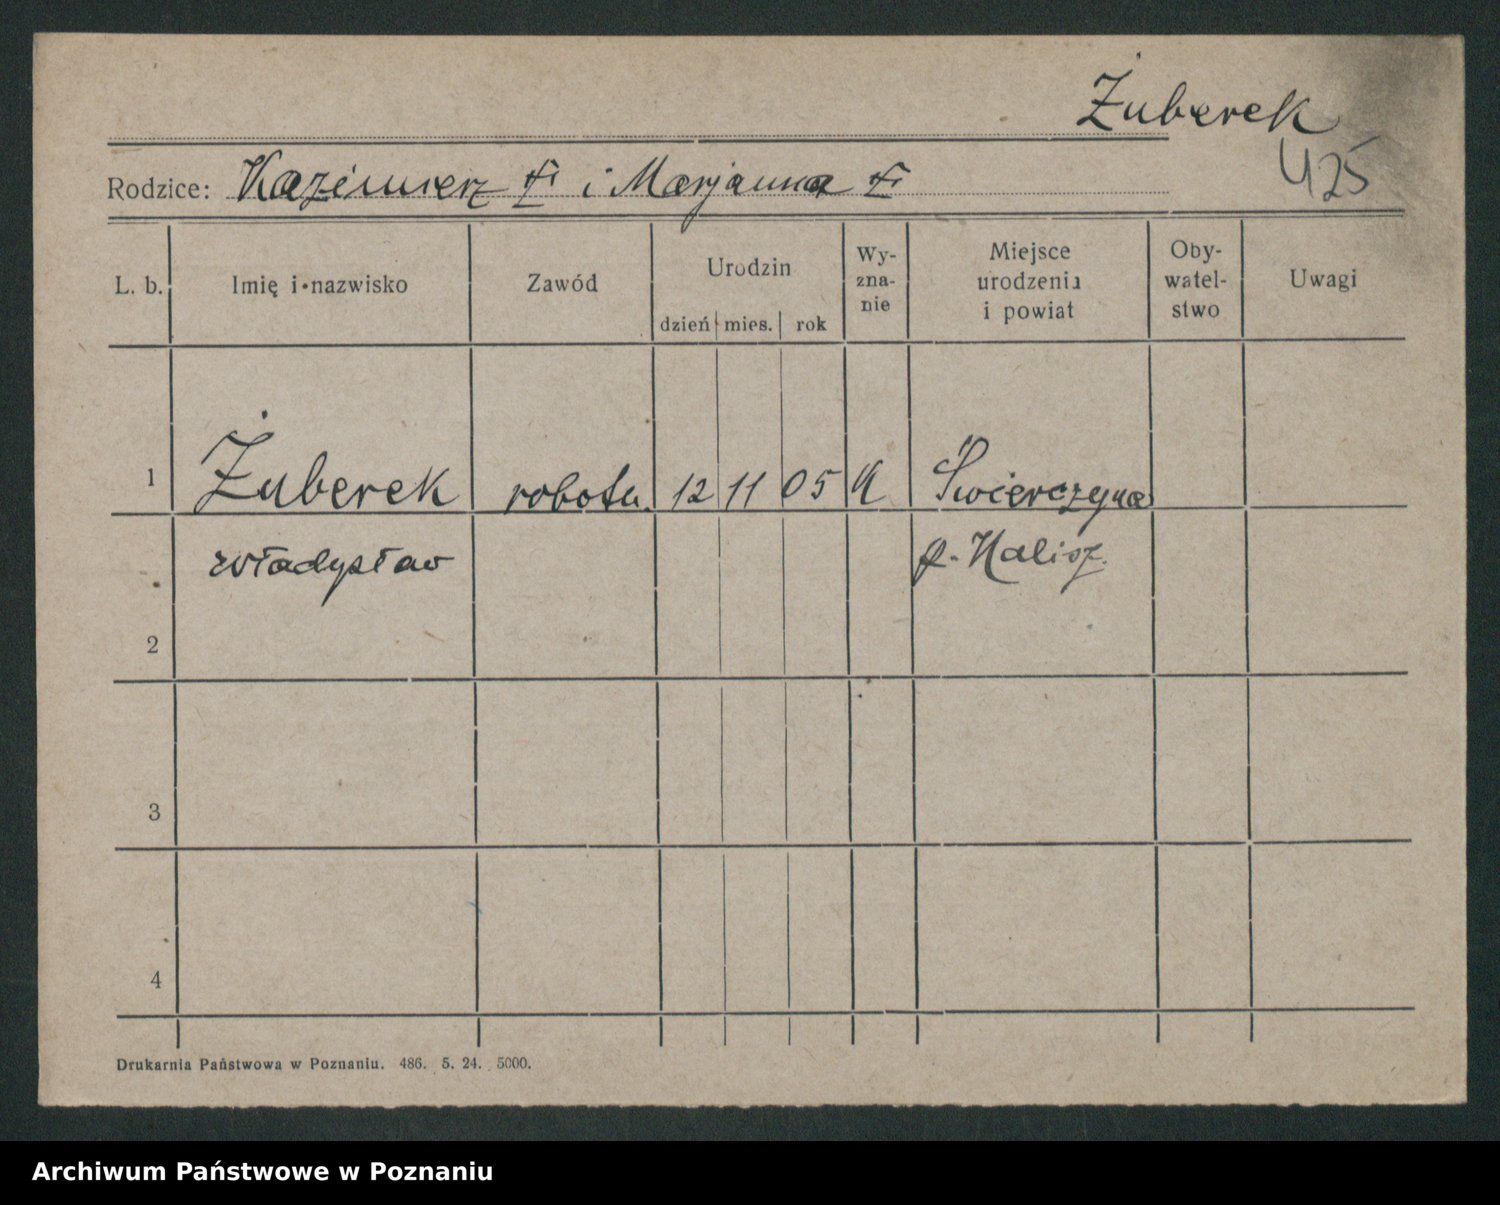 Żuberek
425
Rodzice: Kazimierz i Marjanna
L. b. Imię i nazwisko Zawód Urodzin dzień mies. rok Wy-zna-nie Miejsce urodzenia i powiat Oby-watel-stwo Uwagi
1 Żuberek robotn. 12 11 05 K Świerczyna
Władysław p. Kalisz.
2
3
4
Drukarnia Państwowa w Poznaniu. 486. 5. 24. 5000.
Archiwum Państwowe w Poznaniu